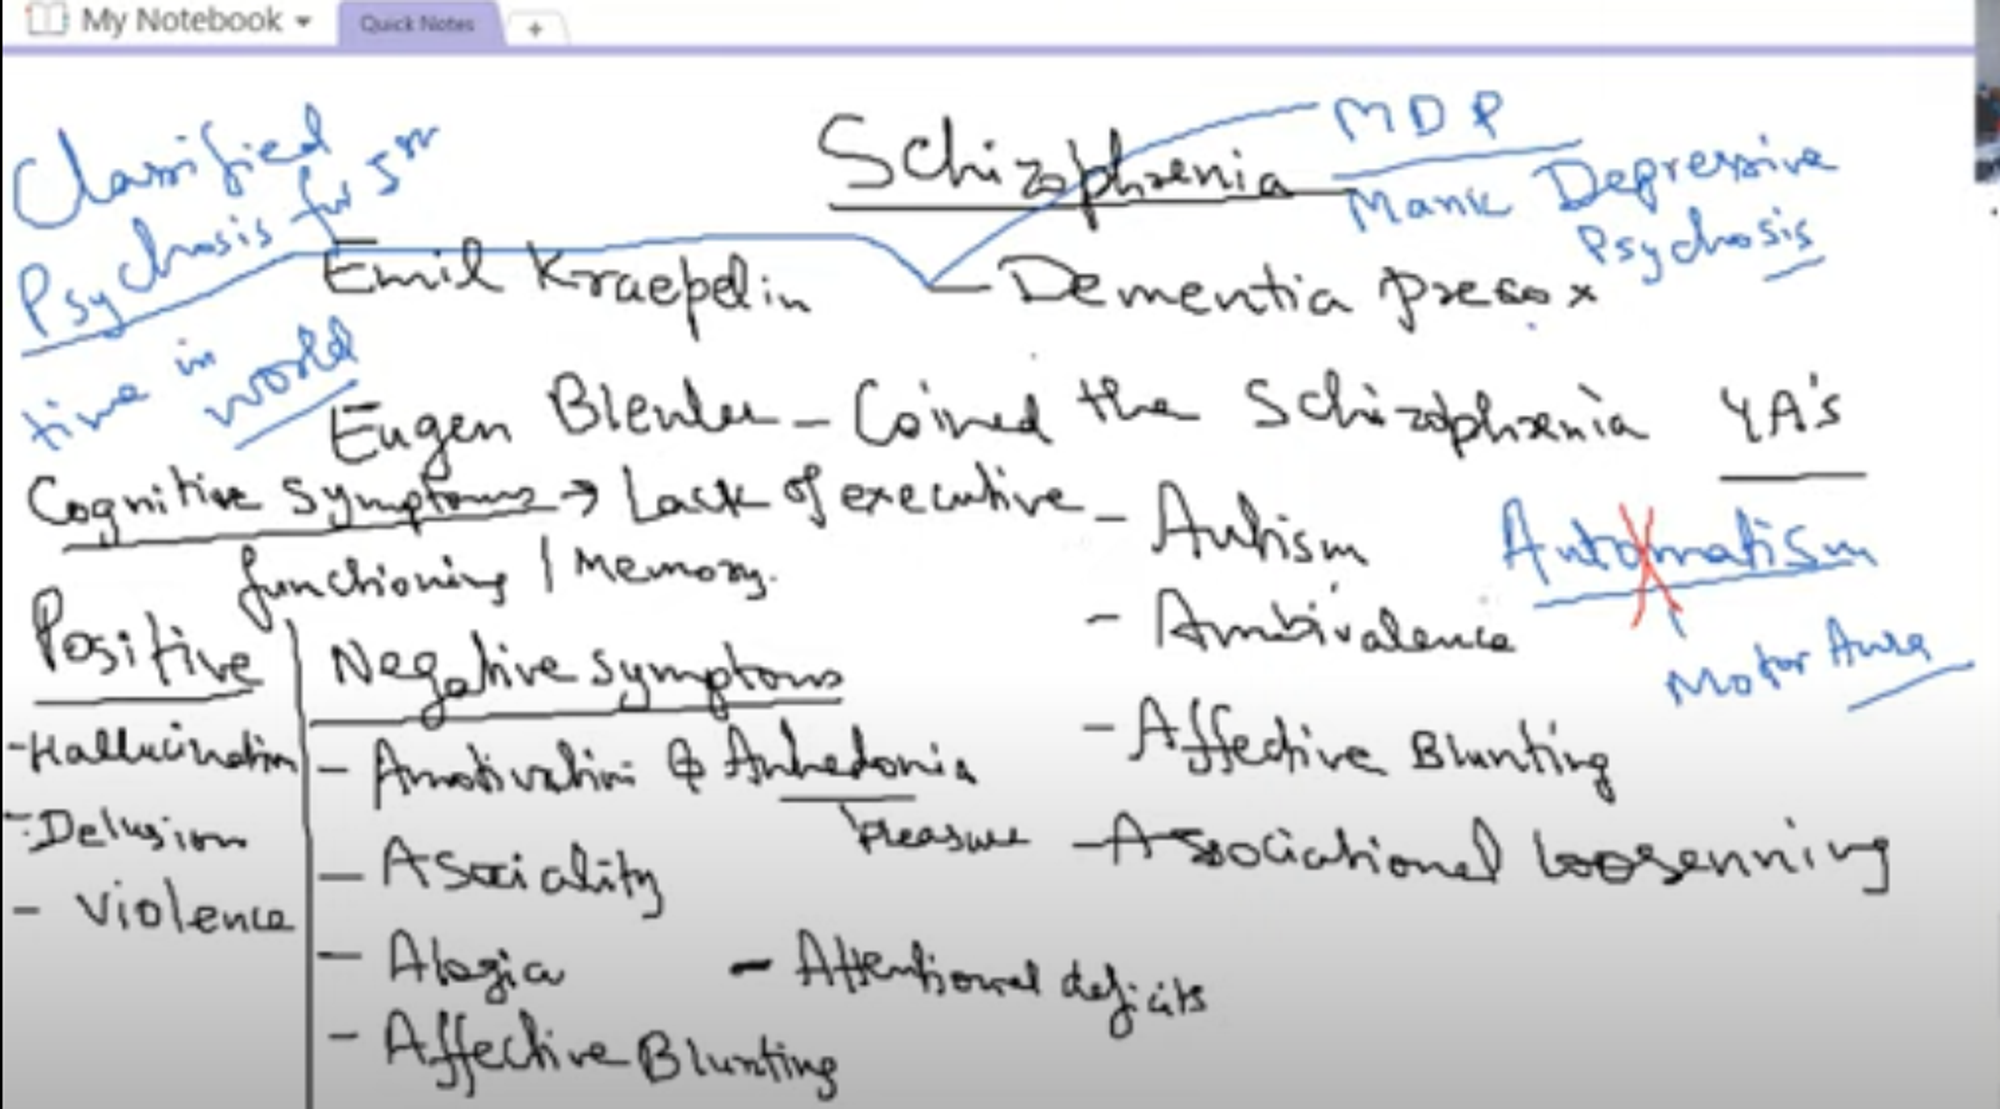 My Notebook
Quick Notes
+
Schizophrenia
MDP
Manic Depressive
Psychosis
Classified
Psychosis for 1st
time in
world
Emil Kraepelin - Dementia precox
Eugen Bleuler - Coined the Schizophrenia 4A's
Cognitive symptoms → Lack of executive
functioning / Memory.
- Autism
- Ambivalence
- Affective Blunting
- Associational loosenning
Automatism
Motor Aura
Positive
- Hallucination
- Delusion
- Violence
Negative symptoms
- Amotivation & Anhedonia
pleasure
- Asociality
- Alogia
- Attentional deficits
- Affective Blunting